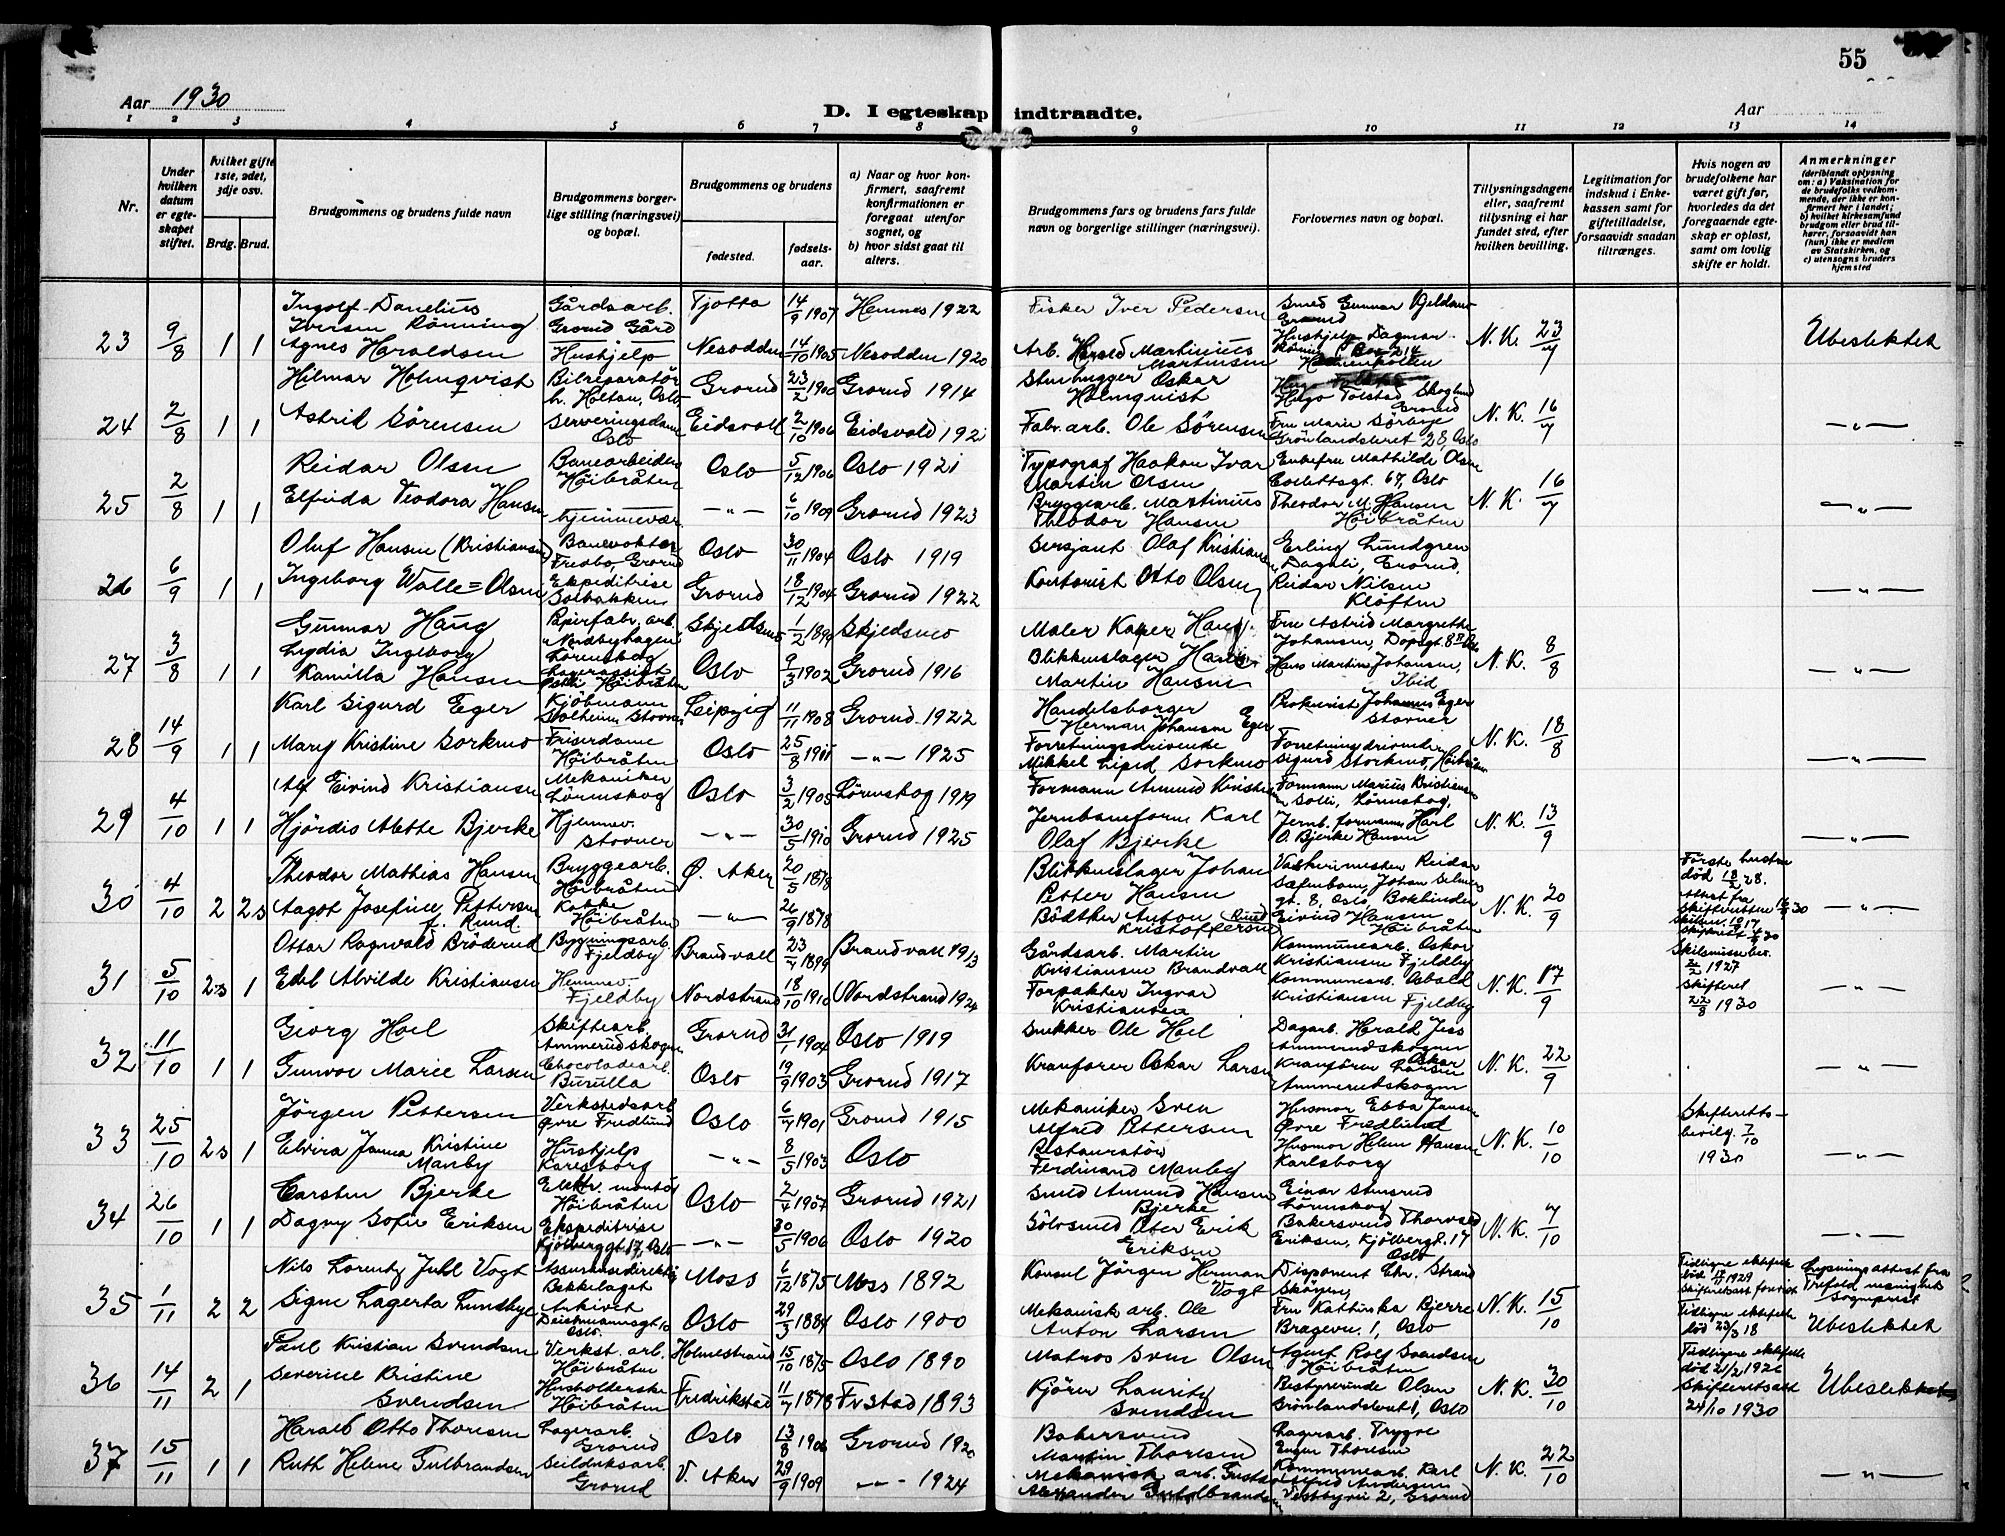 55
Aar 1930
D. I egteskap indtraadte.
Aar
1 2 3 4 5 6 7 8 9 10 11 12 13 14
Nr.
Under hvilken datum er egteskapet stiftet.
Hvilket gifte 1ste, 2det, 3dje osv.
Brdg. Brud.
Brudgommens og brudens fulde navn
Brudgommens borgerlige stilling (næringsvei) og bopæl.
Brudgommens og brudens
fødested.
fødselsaar.
a) Naar og hvor konfirmert, saafremt konfirmationen er foregaat utenfor sognet, og
b) hvor sidst gaat til alters.
Brudgommens fars og brudens fars fulde navn og borgerlige stillinger (næringsvei).
Forlovernes navn og bopæl.
Tillysningsdagene eller, saafremt tillysning ei har fundet sted, efter hvilken bevilling.
Legitimation for indskud i Enkekassen samt for giftetilladelse, forsaavidt saadan tiltrænges.
Hvis nogen av brudefolkene har været gift før, hvorledes da det foregaaende egteskap er opløst, samt om lovlig skifte er holdt.
Anmerkninger
(deriblandt oplysning om: a) Vaksination for de brudefolks vedkommende, der ikke er konfirmert her i landet; b) hvilket kirkesamfund brudgom eller brud tilhører, forsaavidt han (hun) ikke er medlem av Statskirken, og c) utensogns bruders hjemsted
Ingolf Danelius Iversen Rönning Gårdsarb. Grorud Gård Tjøtta 14/9 1907 Hemnes 1922 Fisker Iver Pedersen Smed Gunnar
23 9/8 1 1 Agnes Haroldsen Hushjelp Nesodden 14/10 1905 Nesodden 1920 Arb. Harald Martinius Martinsen Hushjelp Dagmar N. K. 23/7 Ubeslektet
Hilmar Holmqvist Bilreparatör h. Holtan, Oslo Grorud 23/2 1900 Grorud 1914 Stenhugger Oskar Holmquist Hugo Tolstad Skoglund Grorud
24 2/8 1 1 Astrid Sörensen Serveringsdame Oslo Eidsvoll 2/10 1906 Eidsvold 192 Fabr. arb. Ole Sörensen Fru Marie Grönlandsleret 28, Oslo N. K. 16/7 — " —
Reidar Olsen Banearbeider Höibråten Oslo 5/12 1906 Oslo 1921 Typograf Haakon Ivar Martin Olsen Enkefru Mathilde Olsen 67, Oslo
25 2/8 1 1 Elfrida Teodora Hansen hjemmevær. — " — 6/10 1909 Grorud 1923 Bryggearb. Martinius Theodor Hansen Theodor M. Hansen Höibråten N. K. 16/7 — " —
Oluf Hansen (Kristiansen) Banevokter Fredbo, Grorud Oslo 30/11 1904 Oslo 1919 Sersjant Olaf Kristiansen Erling Lundgren Dagali, Grorud.
26 6/9 1 1 Ingeborg Walle=Olsen Ekspeditrise Solbakken Grorud 18/12 1904 Grorud 1922 Kontorist Otto Olsen Reidar Nilsen Klöften — " —
Gunnar Haug Papirfabr. arb. Nordbyhagen Lörenskog Skjedsmo 1/2 1899 Skjedsmo Maler Kasper Haug Fru Astrid Margrethe Johansen,
27 3/8 1 1 Lydia Ingeborg Kamilla Hansen Höibråten Oslo 9/3 1902 Grorud 1916 Blikkenslager Hans Martin Hansen Hans Martin Johansen, Ibid N. K. 8/8 — " —
Karl Sigurd Eger Kjöbmann Solheim, Stovner Leipzig 11/11 1908 Grorud 1922 Handelsborger Herman Johansen Eger Prokurist Johannes Eger Stovner
28 14/9 1 1 Mary Kristine Sorkmo Friserdame Höibråten Oslo 25/8 — " — 1925 Forretningsdrivende Mikkel Sorkmo Forretningsdrivende Sigurd Storkmo, Höibråten N. K. 18/8 — " —
Alf Eivind Kristiansen Mekaniker Lörenskog Oslo 3/2 1905 Lörenskog 1919 Formann Amund Kristiansen Formann Marius Kristiansen Solli, Lörenskog,
29 4/10 1 1 Hjördis Alette Bjerke Hjemmev. Stovner — " — 30/5 1910 Grorud 1925 Jernbaneform. Karl Olaf Bjerke Jernb. formann Karl O. Bjerke Hansen N. K. 13/9 — " —
Theodor Mathias Hansen Bryggearb. Höibråten Ø. Aker 20/5 1878 Blikkenslager Johan Petter Hansen Reidar Johan Selmers gt. 8, Oslo, Bokbinder Første hustru død 18/2 28.
30 4/10 2 2s Aagot Josefine Pettersen f. Rund. Kokke Höibråten — " — 26/9 1878 Bödtker Anton Kristoffersen Rund Eivind Hansen Höibråten N. K. 20/9 Attest fra Skifteretten — " —
Ottar Ragnvald Bröderud Bygningsarb. Fjeldby Brandvall 23/7 1899 Brandvall 1913 Gårdsarb. Martin Kristiansen Brandvall Kommunearb. Oskar Kristiansen Fjeldby Skilsmissebev. 1927
31 5/10 2s 1 Edel Alvilde Kristiansen Hemmev. Fjeldby Nordstrand 18/10 1910 Nordstrand 1924 Forpakter Ingvar Kristiansen Kommunearb. Kristiansen Fjeldby N. K. 17/9 Skifteret 22/8 1930 — " —
Georg Hoel Skiftearb. Ammerudskogen Grorud 31/1 1904 Oslo 1919 Snekker Ole Hoel Dagarb. Harald Jess Ammerudskogen
32 11/10 1 1 Gunvor Marie Larsen Chocoladearb. Oslo 19/9 1903 Grorud 1917 Kranförer Oskar Larsen Kranförer Oskar Larsen Ammerudskogen N. K. 22/9 — " —
Jörgen Pettersen Verkstedsarb. Övre Fredlund Oslo 6/7 1901 Grorud 1915 Mekaniker Sven Alfred Pettersen Husmor Ebba Jansen Övre Fredlund Skifteretts-
33 25/10 2s 1 Elvira Janna Kristine Manby Hushjelp Karlsborg — " — 8/5 1903 Oslo Restauratör Ferdinand Manby Husmor Helen Hansen Karlsborg N. K. 10/10 bevilg. 7/10 1930 — " —
Carsten Bjerke Elektr. montör Höibråten Oslo 2/4 1907 Grorud 1921 Smed Amund Hansen Bjerke Einar Stensrud Lörenskog
34 26/10 1 1 Dagny Sofie Eriksen Ekspeditrise Kjölberggt. 17, Oslo — " — 30/5 1906 Oslo 1920 Gölvsmed Peter Erik Eriksen Bakersvend Thorvald Eriksen, Kjölbergt. 17 Oslo N. K. 7/10 — " —
Nils Lorentz Juhl Vogt Assuransedirektör Bekkelaget Moss 6/12 1875 Moss 1892 Konsul Jörgen Herman Vogt Disponent Chr. Strand Skøyen, Tidligere ektefelle død 1929 Lysningsattest fra Trefold. menighets sogneprest
35 1/11 2 2 Signe Lagerta Lundbye Arkivet Deichmannsgt. 10 Oslo. Oslo 29/3 1884 Oslo 1900 Mekanisk arb. Ole Anton Larsen Fru Kathinka Bjerre Bragevn. 1, Oslo N. K. 15/10 Tidligere ektefelle død 23/3 18 Ubeslektet
Paul Kristian Svendsen Verkst. arb. Höibråten Holmestrand 15/10 1875 Oslo 1890 Matros Sven Olsen Agent Rolf Svendsen Höibråten Tidligere ektefelle død 21/2 1926
36 14/11 2 1 Severine Kristine Svendsen Husholderske Höibråten Fredrikstad 11/7 1878 Frstad 1893 Kjörer Lauritz Svendsen Bestyrerinde Olsen Grönlandsleret 1, Oslo N. K. 30/10 Skifterettsatt 24/10 1930 Ubeslektet
Harald Otto Thoresen Lagerarb. Grorud Oslo 13/8 190 Grorud 1920 Bakersvend Martin Thoresen Lagerarb. Trygve Thoresen
37 15/11 1 1 Ruth Helene Gulbrandsen Seilduksarb. Grorud V. Aker 29/9 1909 — " — 1924 Mekanisk arb. Gustav Alexander Gulbrandsen Kommunearb. Karl Andersen Vestbyvei 2, Grorud N. K. 22/10 — " —